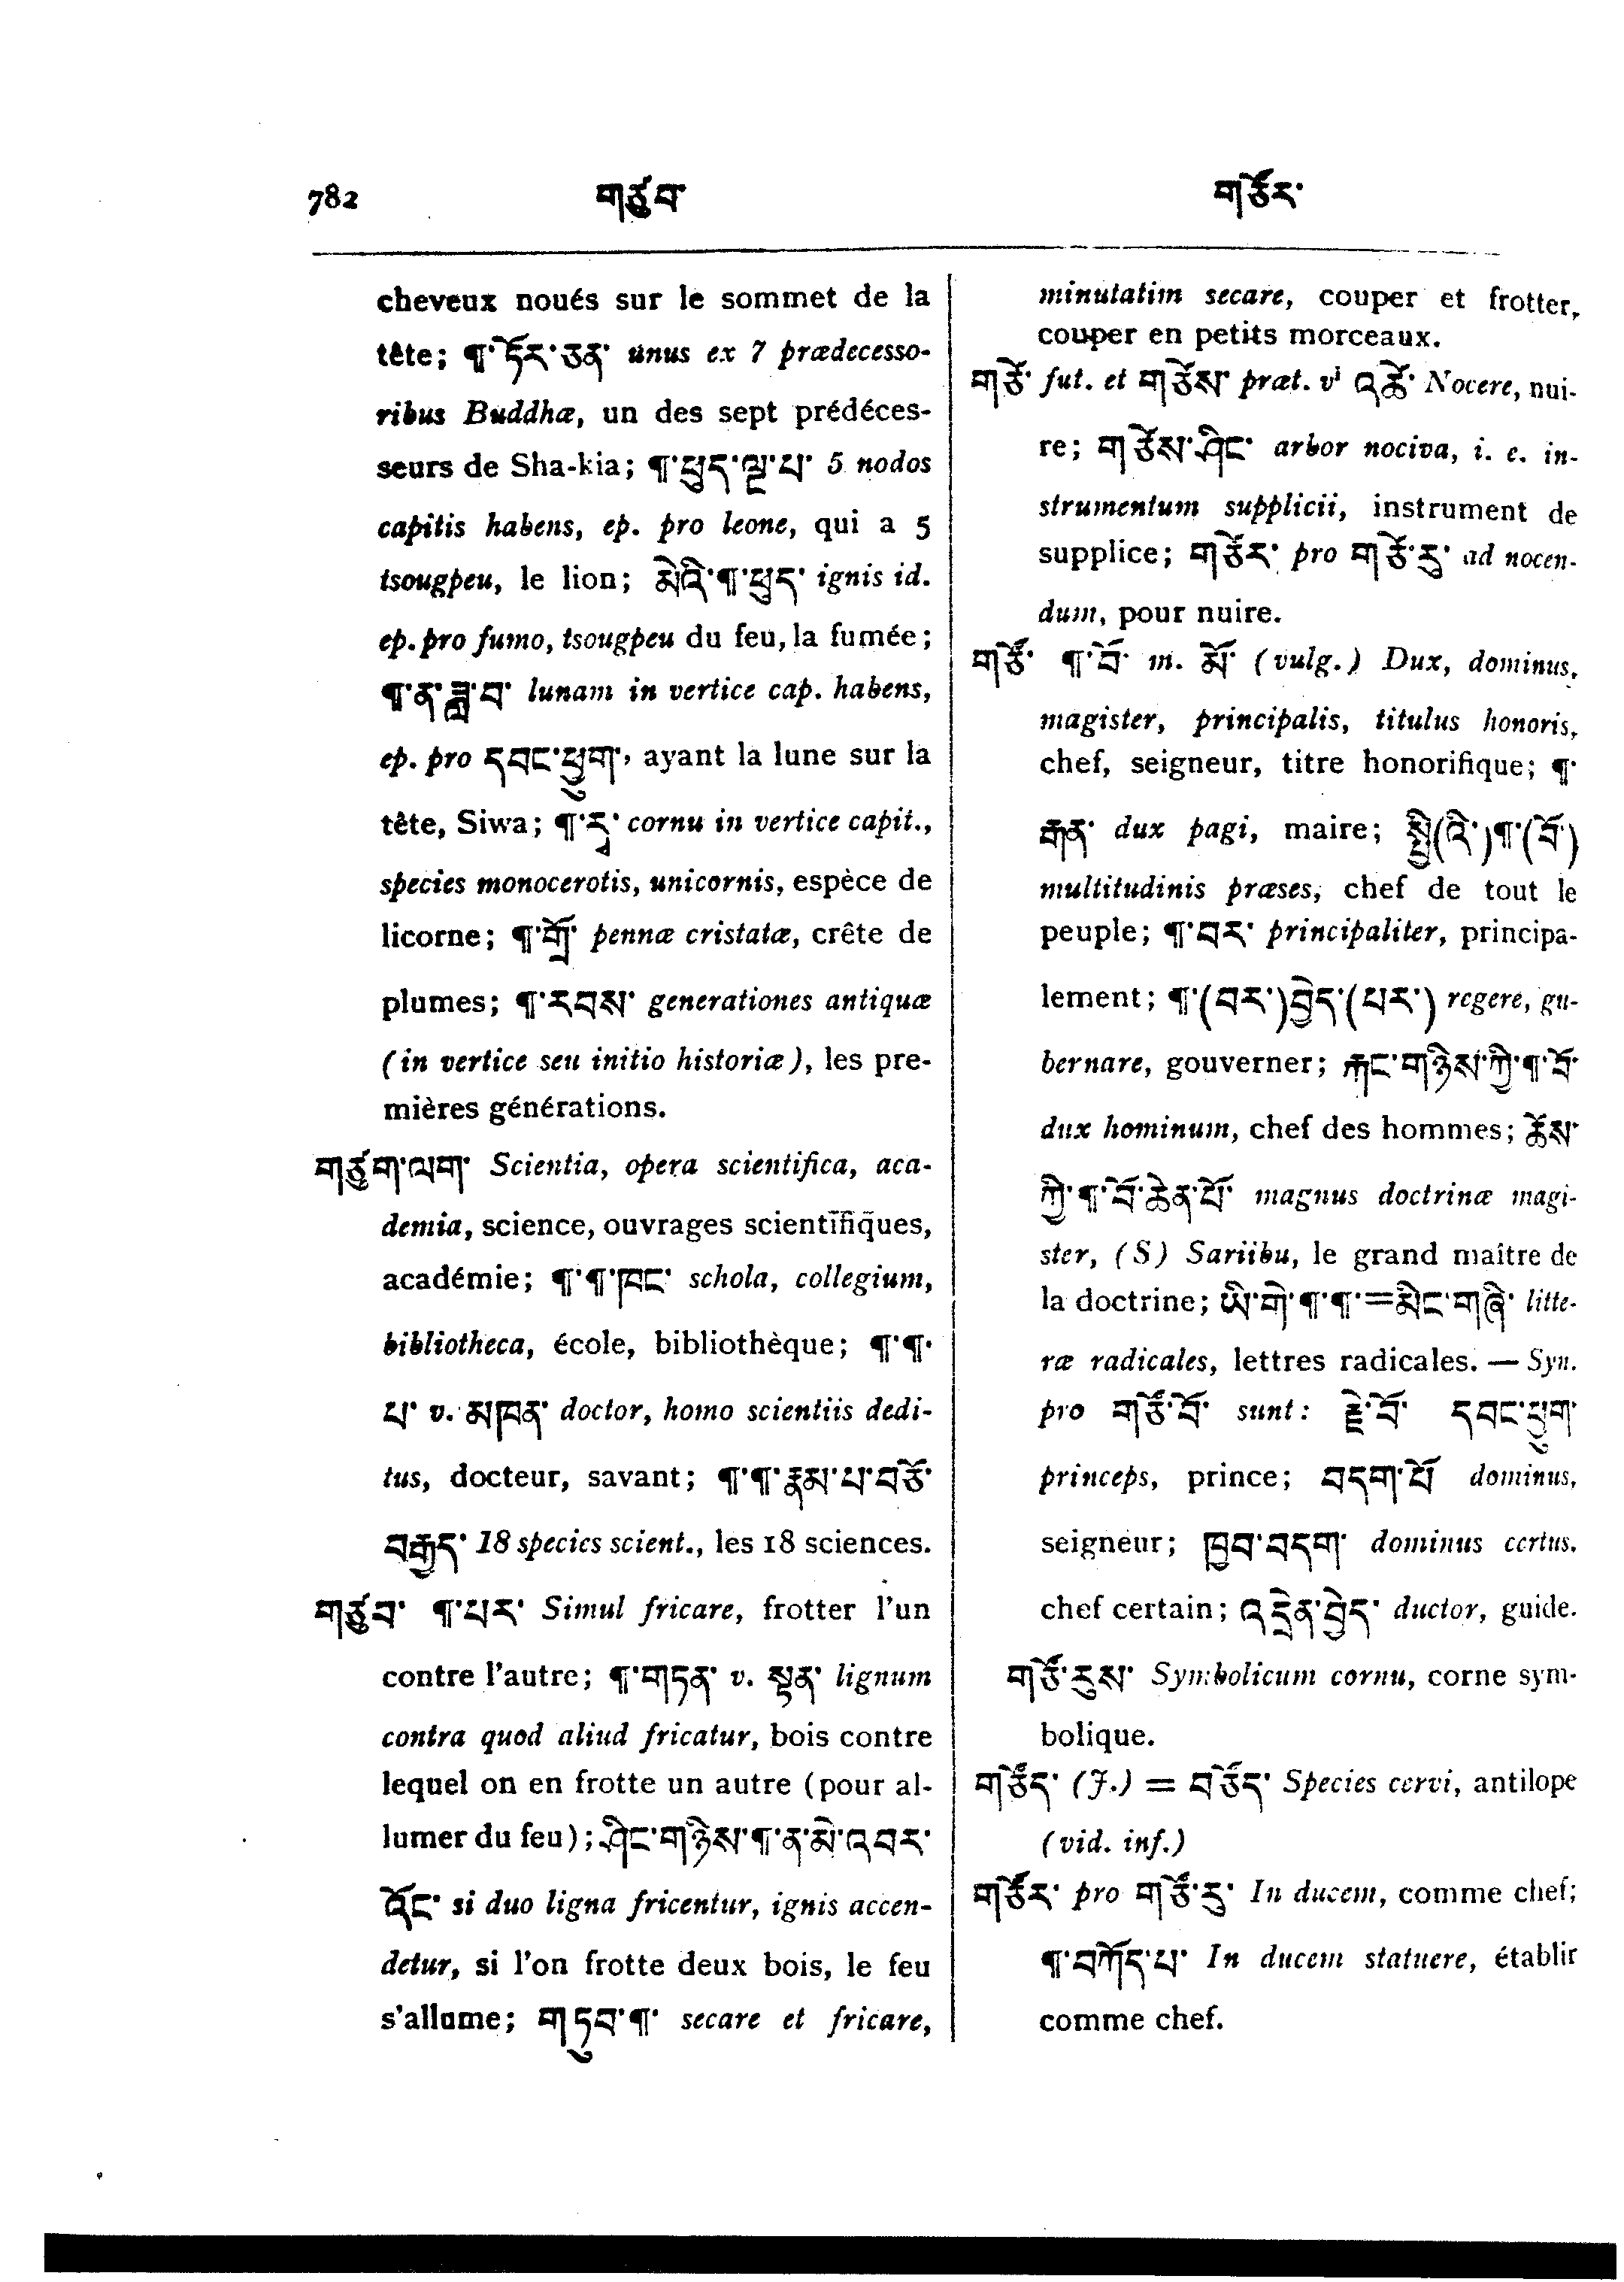 782 གཙུབ་ གཙོར་
cheveux noués sur le sommet de la
tête; ¶་ཏོར་ཅན་ unus ex 7 prædecesso-
ribus Buddhæ, un des sept prédéces-
seurs de Sha-kia; ¶་ཕུད་ལྔ་པ་ 5 nodos
capitis habens, ep. pro leone, qui a 5
tsougpeu, le lion; མེའི་¶་ཕུད་ ignis id.
ep. pro fumo, tsougpeu du feu, la fumée;
¶་ན་ཟླ་བ་ lunam in vertice cap. habens,
ep. pro དབང་ཕྱུག་, ayant la lune sur la
tête, Siwa; ¶་རྭ་ cornu in vertice capit.,
species monocerotis, unicornis, espèce de
licorne; ¶་གྲོ་ pennæ cristatæ, crête de
plumes; ¶་རབས་ generationes antiquæ
(in vertice seu initio historiæ), les pre-
mières générations.
གཙུག་ལག་ Scientia, opera scientifica, aca-
demia, science, ouvrages scientifiques,
académie; ¶་¶་ཁང་ schola, collegium,
bibliotheca, école, bibliothèque; ¶་¶་
པ་ v. མཁན་ doctor, homo scientiis dedi-
tus, docteur, savant; ¶་¶་རྣམ་པ་བཅོ་
བརྒྱད་ 18 species scient., les 18 sciences.
གཙུབ་ ¶་པར་ Simul fricare, frotter l'un
contre l'autre; ¶་གཏན་ v. སྟན་ lignum
contra quod aliud fricatur, bois contre
lequel on en frotte un autre (pour al-
lumer du feu); ཤིང་གཉིས་¶་ན་མེ་འབར་
འོང་ si duo ligna fricentur, ignis accen-
detur, si l'on frotte deux bois, le feu
s'allume; གཏུབ་¶་ secare et fricare,
minutatim secare, couper et frotter,
couper en petits morceaux.
གཙེ་ fut. et གཙེས་ præt. vi འཚེ་ Nocere, nui-
re; གཙེས་ཤིང་ arbor nociva, i. e. in-
strumentum supplicii, instrument de
supplice; གཙེར་ pro གཙེ་རུ་ ad nocen-
dum, pour nuire.
གཙོ་ ¶་བོ་ m. མོ་ (vulg.) Dux, dominus,
magister, principalis, titulus honoris,
chef, seigneur, titre honorifique; ¶་
རྒན་ dux pagi, maire; སྤྱི(འི་)¶་(བོ་)
multitudinis præses, chef de tout le
peuple; ¶་བར་ principaliter, principa-
lement; ¶་(བར་)བྱེད་(པར་) regere, gu-
bernare, gouverner; རྐང་གཉིས་ཀྱི་¶་བོ་
dux hominum, chef des hommes; ཆོས་
ཀྱི་¶་བོ་ཆེན་པོ་ magnus doctrinæ magi-
ster, (S) Sariibu, le grand maître de
la doctrine; ཡི་གེ་¶་¶་=མིང་གཞི་ litte-
ræ radicales, lettres radicales. — Syn.
pro གཙོ་བོ་ sunt: རྗེ་བོ་ དབང་ཕྱུག་
princeps, prince; བདག་པོ་ dominus,
seigneur; ཁྱབ་བདག་ dominus certus,
chef certain; འདྲེན་བྱེད་ ductor, guide.
གཙོ་རུས་ Symbolicum cornu, corne sym-
bolique.
གཙོད་ (J.) = བཙོད་ Species cervi, antilope
(vid. inf.)
གཙོར་ pro གཙོ་རུ་ In ducem, comme chef;
¶་བཀོད་པ་ In ducem statuere, établir
comme chef.